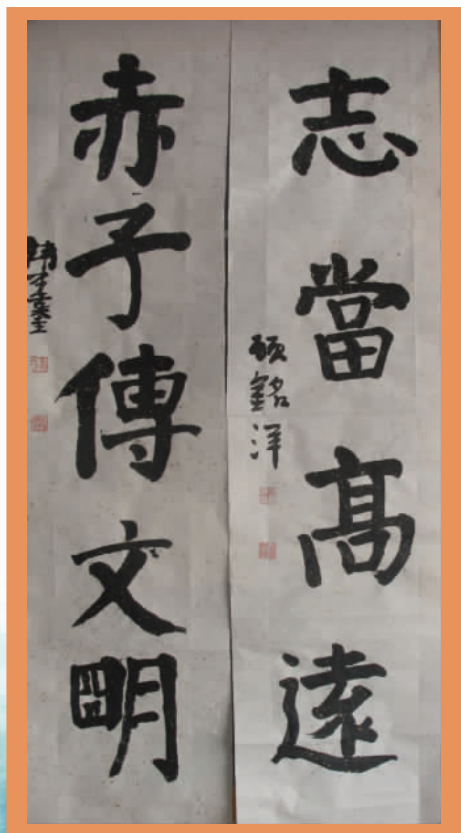 志當髙遠
顾銘洋
赤子傳文明